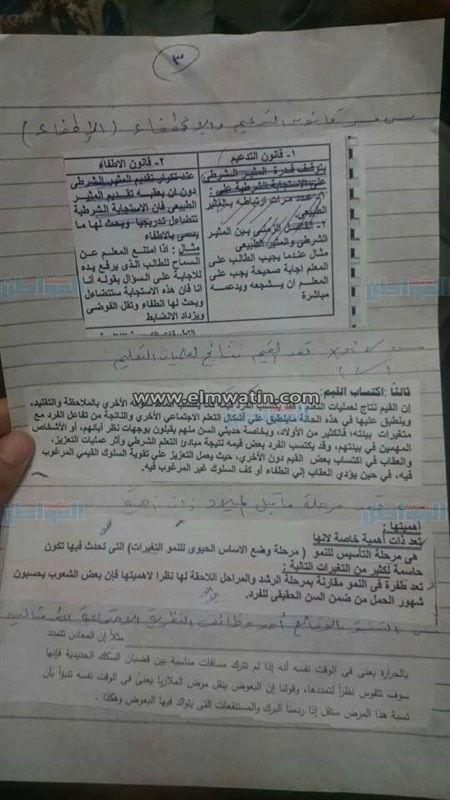 ٣
س قانون التدعيم والانطفاء (الإطفاء)
١- قانون التدعيم
يتوقف قدرة المثير الشرطى
على الاستجابة الشرطية على :
عدد مرات ارتباطه بالمثير
الطبيعى
٢- الفاصل الزمنى بين المثير
الشرطى والمثير الطبيعى
مثال عندما يجيب الطالب على
المعلم اجابة صحيحة يجب على
المعلم ان يشجعه ويدعمه
مباشرة
٢- قانون الاطفاء
عند تكرار تقديم المثير الشرطى
دون ان يعقبه تقديم المثير
الطبيعى فان الاستجابة الشرطية
تتضاءل تدريجيا ويحث لها ما
يسمى بالاطفاء
مثال : اذا امتنع المعلم عن
السماح للطالب الذى يرفع يده
للاجابة على السؤال بقوله أنا
أنا فان هذه الاستجابة ستتضاءل
ويحث لها انطفاء وتقل الفوضى
ويزداد الانضباط
تعد القيم نتائج لعمليات التعليم
www.elmwatin.com
ثالثا: اكتساب القيم:
إن القيم نتاج لعمليات التعلم
الأخري بالملاحظة والتقليد،
وينطبق عليها في هذه الحالة ماينطبق علي أشكال التعلم الاجتماعي الأخري والناتجة من تفاعل الفرد مع
متغيرات بيئته؛ فالكثير من الأولاد، وبخاصة حديثي السن منهم يقبلون بوجهات نظر آبائهم، أو الأشخاص
المهمين في بيئتهم، وقد يكتسب الفرد بعض قيمه نتيجة مبادئ التعلم الشرطي وأثر عمليات التعزيز،
والعقاب في اكتساب بعض القيم دون الأخري، حيث يعمل التعزيز علي تقوية السلوك القيمي المرغوب
فيه، في حين يؤدي العقاب إلي انطفاء أو كف السلوك غير المرغوب فيه.
مرحلة ما قبل الميلاد ذات أهمية
أهميتها :
تعد ذات أهمية خاصة لانها
هى مرحلة التأسيس للنمو ( مرحلة وضع الاساس الحيوى للنمو التغيرات) التى تحدث فيها تكون
حاسمة لكثير من التغيرات التالية :
تعد طفرة فى النمو مقارنة بمرحلة الرشد والمراحل اللاحقة لها نظرا لاهميتها فإن بعض الشعوب يحسبون
شهور الحمل من ضمن السن الحقيقى للفرد.
س التنبؤ بالوقائع أحد وظائف النظرية الاجتماعية
مثلاً إن المعادن تتمدد
بالحرارة يعنى فى الوقت نفسه أنه إذا لم تترك مسافات مناسبة بين قضبان السكك الحديدية فإنها
سوف تتقوس نظراً لتمددها، وقولنا إن البعوض ينقل مرض الملاريا يعنى فى الوقت نفسه تنبؤاً بأن
نسبة هذا المرض ستقل إذا ردمنا البرك والمستنقعات التى يتوالد فيها البعوض وهكذا .
المواطن